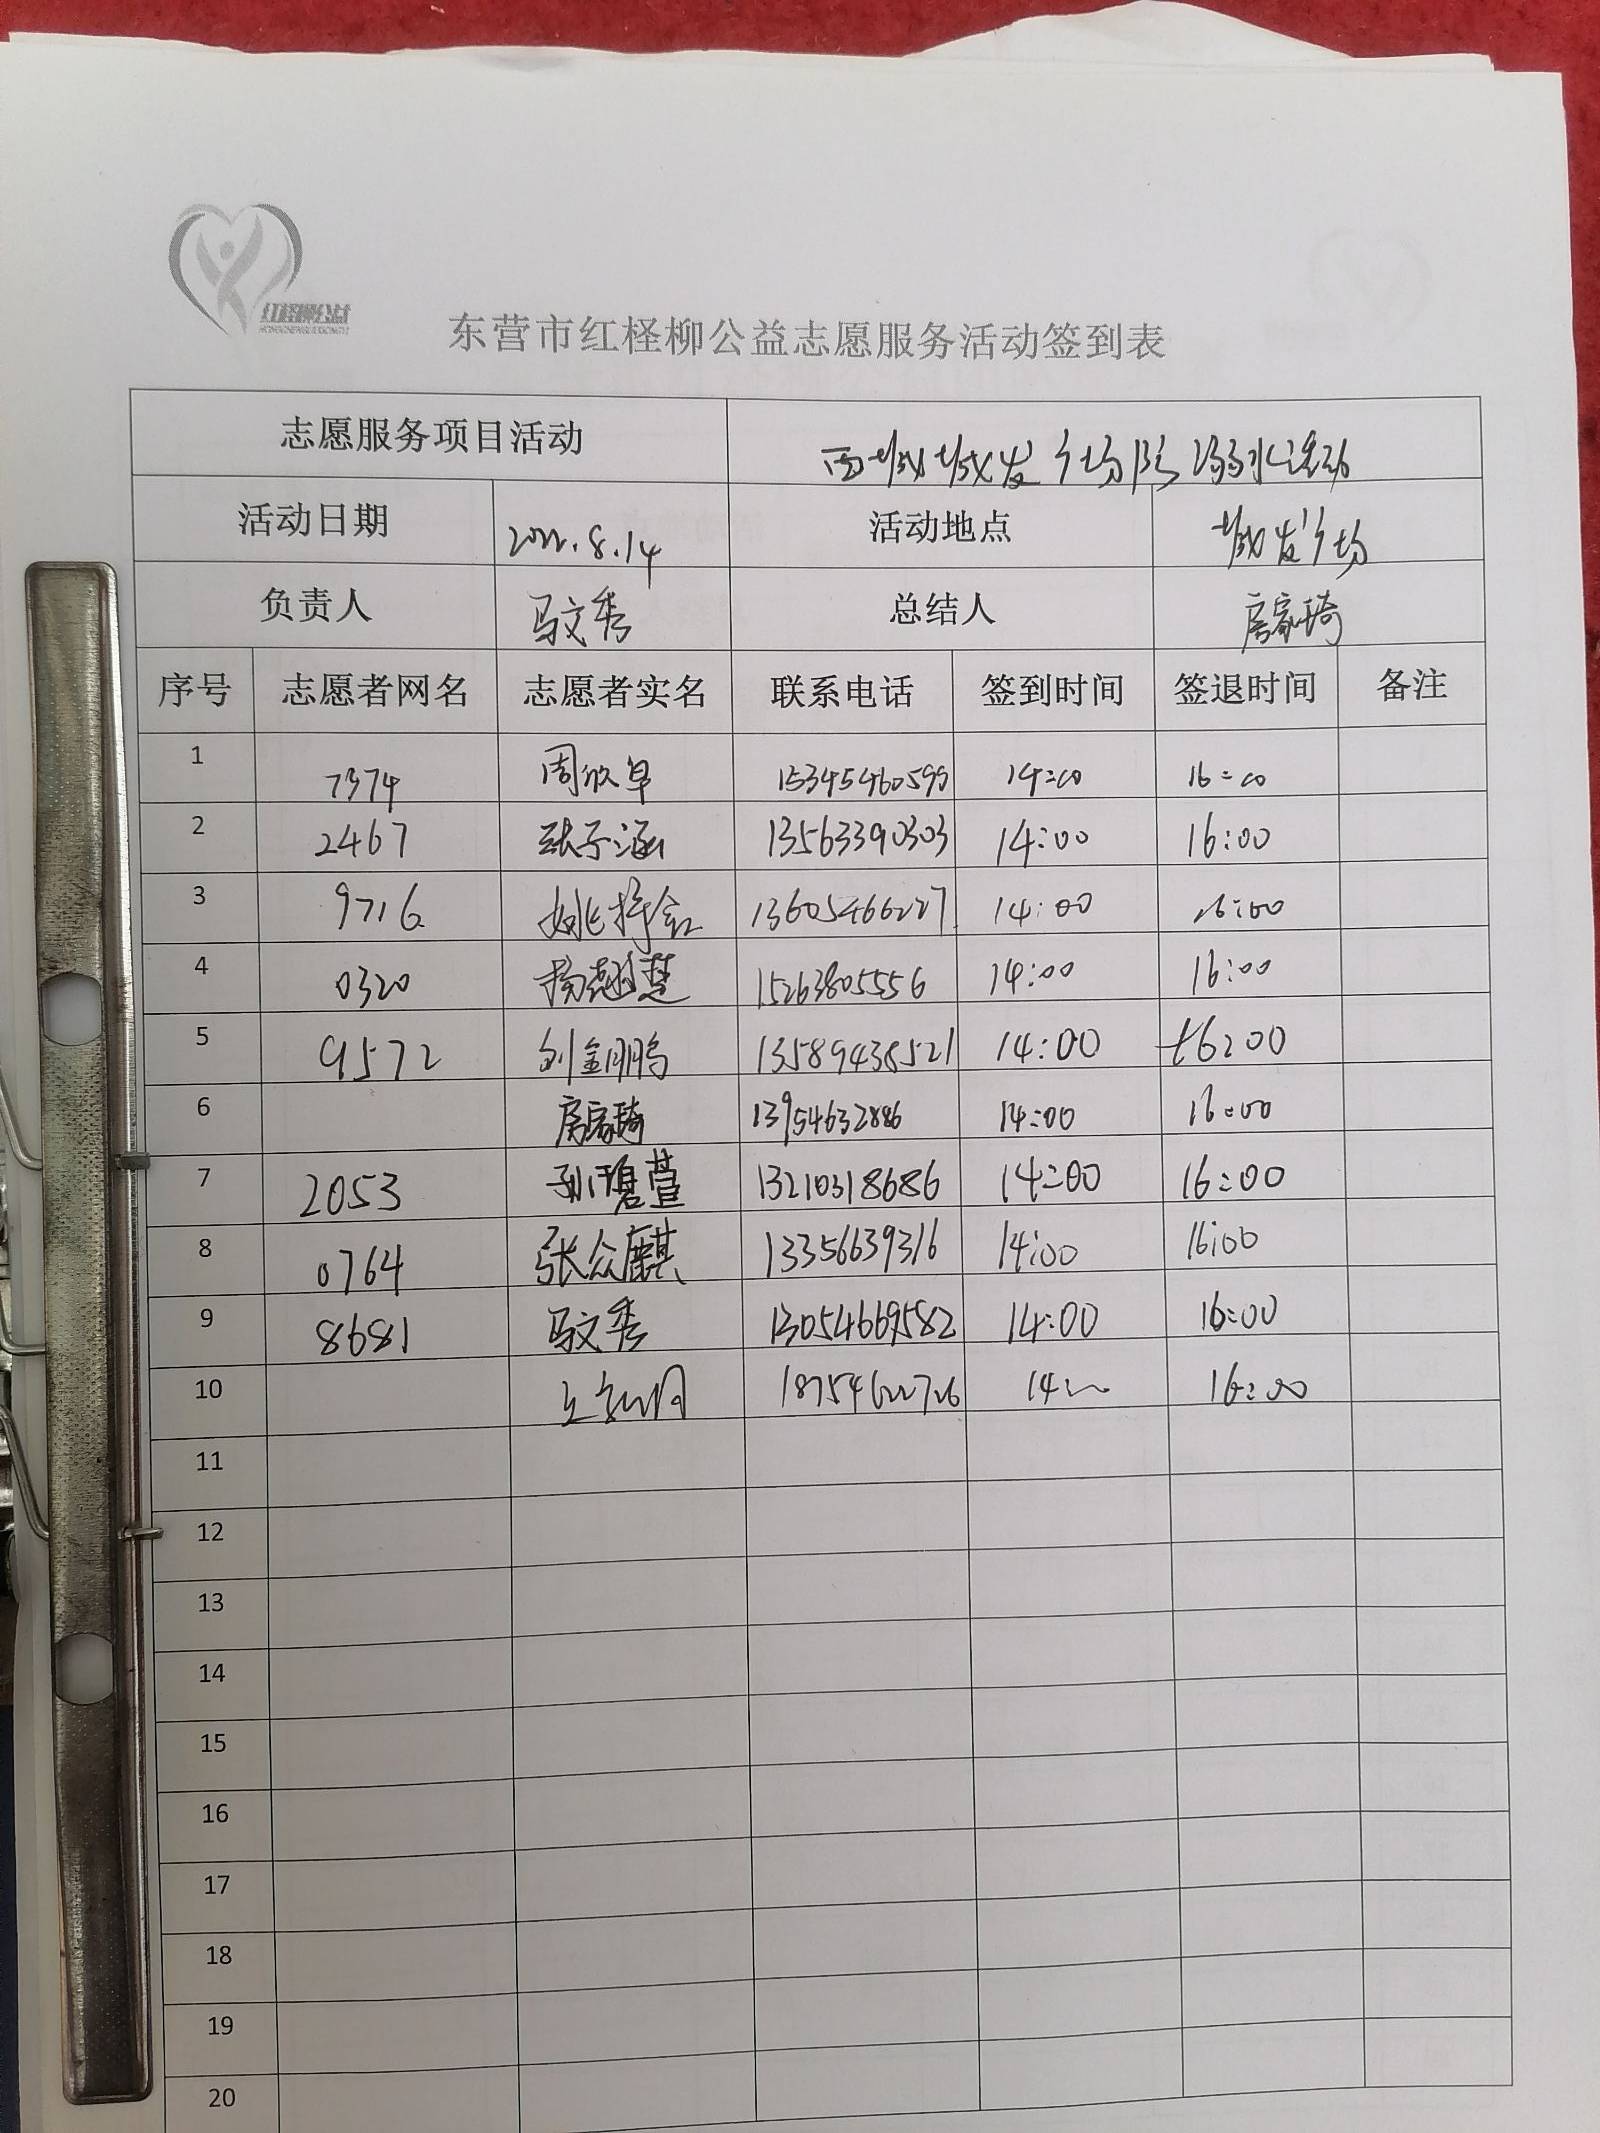 红柽柳公益
HONGCHENGLIUGONGYI
东营市红柽柳公益志愿服务活动签到表
志愿服务项目活动 西城城发广场防溺水活动
活动日期 2022.8.14 活动地点 城发广场
负责人 马文秀 总结人 房家琦
序号 志愿者网名 志愿者实名 联系电话 签到时间 签退时间 备注
1 7374 周欣卓 15345460599 14:00 16:00
2 2467 张子涵 13563390303 14:00 16:00
3 9716 姚择 13605466227 14:00 16:00
4 0320 杨 慧 15263805556 14:00 16:00
5 9572 刘金鹏 13589438521 14:00 16:00
6 房家琦 13954632886 14:00 16:00
7 2053 孙 萱 13210318686 14:00 16:00
8 0764 张众麒 13356639316 14:00 16:00
9 8681 马文秀 13054669582 14:00 16:00
10 18754622726 14:00 16:00
11
12
13
14
15
16
17
18
19
20